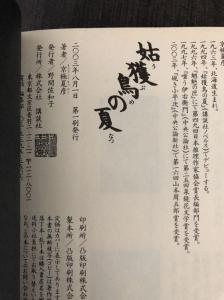 一九六三年、北海道生まれ。
一九九四年、『姑獲鳥の夏』(講談社ノベルス)でデビューする。
一九九六年、『魍魎の匣』にて第四九回日本推理作家協会賞長編部門を受賞。
一九九七年、『嗤う伊右衛門』(中央公論社)にて第二五回泉鏡花文学賞を受賞。
二〇〇三年、『覘き小平次』(中央公論新社)にて第一六回山本周五郎賞を受賞。
姑獲鳥の夏
うぶめ なつ
二〇〇三年八月一日 第一刷発行
著者/京極夏彦
発行者/野間佐和子
発行所/株式会社 講談社
東京都文京区音羽二-一二-
印刷所/凸版印刷株式会社
製本所/凸版印刷株式会